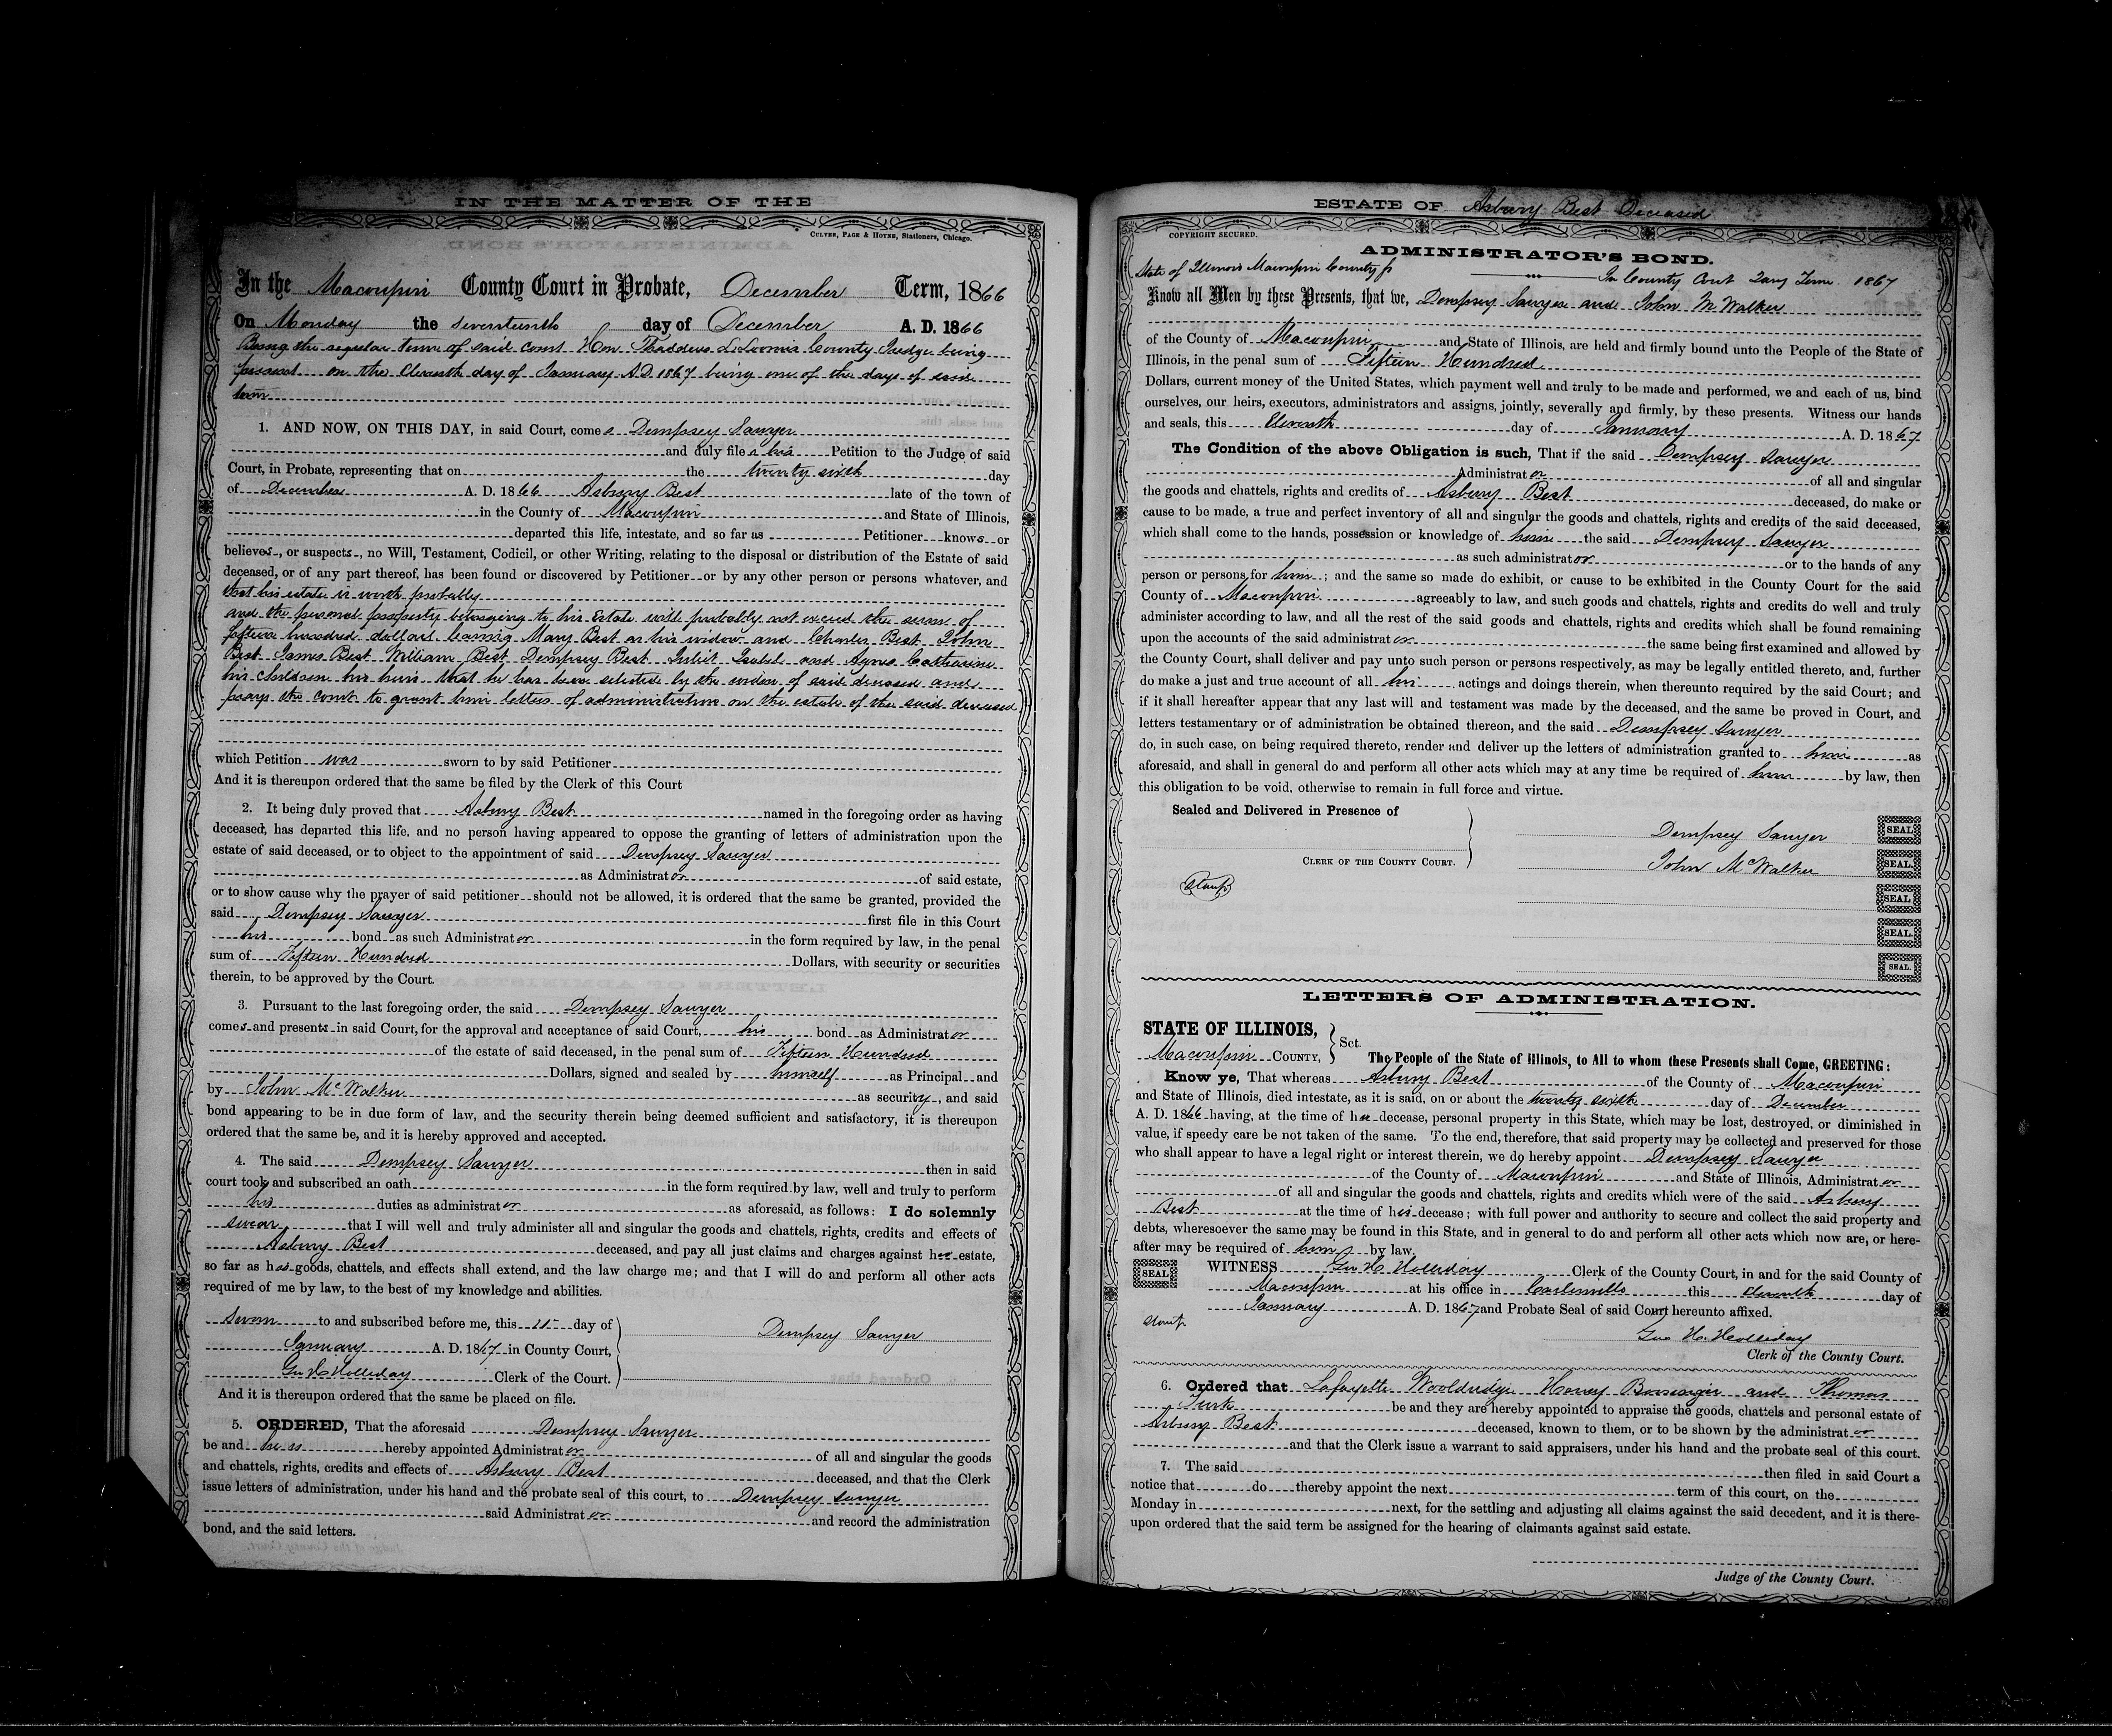 IN THE MATTER OF THE
CULVER, PAGE & HOYNE, Stationers, Chicago.
In the Macoupin County Court in Probate, December Term, 1866
On Monday the Seventeenth day of December A. D. 1866
Being the regular term of said court Hon Thaddeus L Loomis County Judge being
present on the Eleventh day of January A.D. 1867 being one of the days of said
term
1. AND NOW, ON THIS DAY, in said Court, comes Dempsey Sawyer
and duly files his Petition to the Judge of said
Court, in Probate, representing that on the twenty sixth day
of December A. D. 1866 Asbury Best late of the town of
in the County of Macoupin and State of Illinois,
departed this life, intestate, and so far as Petitioner knows or
believes, or suspects, no Will, Testament, Codicil, or other Writing, relating to the disposal or distribution of the Estate of said
deceased, or of any part thereof, has been found or discovered by Petitioner or by any other person or persons whatever, and
that his estate is worth probably
and the personal property belonging to his Estate will probably not exceed the sum of
fifteen hundred dollars leaving Mary Best as his widow and Charles Best John
Best James Best William Best Dempsey Best Juliet Isabel and Agnes Catherine
his children his heirs that he has been selected by the widow of said deceased and
prays the court to grant him letters of administration on the estate of the said deceased
which Petition was sworn to by said Petitioner
And it is thereupon ordered that the same be filed by the Clerk of this Court
2. It being duly proved that Asbury Best named in the foregoing order as having
deceased, has departed this life, and no person having appeared to oppose the granting of letters of administration upon the
estate of said deceased, or to object to the appointment of said Dempsey Sawyer
as Administrator of said estate,
or to show cause why the prayer of said petitioner should not be allowed, it is ordered that the same be granted, provided the
said Dempsey Sawyer first file in this Court
his bond as such Administrator in the form required by law, in the penal
sum of Fifteen Hundred Dollars, with security or securities
therein, to be approved by the Court.
3. Pursuant to the last foregoing order, the said Dempsey Sawyer
comes and presents in said Court, for the approval and acceptance of said Court, his bond as Administrator
of the estate of said deceased, in the penal sum of Fifteen Hundred
Dollars, signed and sealed by himself as Principal and
by John McWalker as security, and said
bond appearing to be in due form of law, and the security therein being deemed sufficient and satisfactory, it is thereupon
ordered that the same be, and it is hereby approved and accepted.
4. The said Dempsey Sawyer then in said
court took and subscribed an oath in the form required by law, well and truly to perform
his duties as administrator as aforesaid, as follows: I do solemnly
swear that I will well and truly administer all and singular the goods and chattels, rights, credits and effects of
Asbury Best deceased, and pay all just claims and charges against her estate,
so far as his goods, chattels, and effects shall extend, and the law charge me; and that I will do and perform all other acts
required of me by law, to the best of my knowledge and abilities.
Sworn to and subscribed before me, this 11 day of
Dempsey Sawyer
January A. D. 1867 in County Court,
Geo H Holliday Clerk of the Court.
And it is thereupon ordered that the same be placed on file.
5. ORDERED, That the aforesaid Dempsey Sawyer
be and he is hereby appointed Administrator of all and singular the goods
and chattels, rights, credits and effects of Asbury Best deceased, and that the Clerk
issue letters of administration, under his hand and the probate seal of this court, to Dempsey Sawyer
said Administrator and record the administration
bond, and the said letters.
ESTATE OF Asbury Best Deceased
COPYRIGHT SECURED.
ADMINISTRATOR'S BOND.
State of Illinois Macoupin County In County Court Jany Term 1867
Know all Men by these Presents, that we, Dempsey Sawyer and John McWalker
of the County of Macoupin and State of Illinois, are held and firmly bound unto the People of the State of
Illinois, in the penal sum of Fifteen Hundred
Dollars, current money of the United States, which payment well and truly to be made and performed, we and each of us, bind
ourselves, our heirs, executors, administrators and assigns, jointly, severally and firmly, by these presents. Witness our hands
and seals, this Eleventh day of January A. D. 1867
The Condition of the above Obligation is such, That if the said Dempsey Sawyer
Administrator of all and singular
the goods and chattels, rights and credits of Asbury Best deceased, do make or
cause to be made, a true and perfect inventory of all and singular the goods and chattels, rights and credits of the said deceased,
which shall come to the hands, possession or knowledge of him the said Dempsey Sawyer
as such administrator or to the hands of any
person or persons for him; and the same so made do exhibit, or cause to be exhibited in the County Court for the said
County of Macoupin agreeably to law, and such goods and chattels, rights and credits do well and truly
administer according to law, and all the rest of the said goods and chattels, rights and credits which shall be found remaining
upon the accounts of the said administrator the same being first examined and allowed by
the County Court, shall deliver and pay unto such person or persons respectively, as may be legally entitled thereto, and, further
do make a just and true account of all his actings and doings therein, when thereunto required by the said Court; and
if it shall hereafter appear that any last will and testament was made by the deceased, and the same be proved in Court, and
letters testamentary or of administration be obtained thereon, and the said Dempsey Sawyer
do, in such case, on being required thereto, render and deliver up the letters of administration granted to him as
aforesaid, and shall in general do and perform all other acts which may at any time be required of him by law, then
this obligation to be void, otherwise to remain in full force and virtue.
Sealed and Delivered in Presence of
Dempsey Sawyer SEAL
CLERK OF THE COUNTY COURT.
John McWalker SEAL.
Stamp
SEAL
SEAL.
SEAL.
LETTERS OF ADMINISTRATION.
STATE OF ILLINOIS,
Macoupin COUNTY, Sct.
The People of the State of Illinois, to All to whom these Presents shall Come, GREETING:
Know ye, That whereas Asbury Best of the County of Macoupin
and State of Illinois, died intestate, as it is said, on or about the twenty sixth day of December
A. D. 1866 having, at the time of his decease, personal property in this State, which may be lost, destroyed, or diminished in
value, if speedy care be not taken of the same. To the end, therefore, that said property may be collected and preserved for those
who shall appear to have a legal right or interest therein, we do hereby appoint Dempsey Sawyer
of the County of Macoupin and State of Illinois, Administrator
of all and singular the goods and chattels, rights and credits which were of the said Asbury
Best at the time of his decease; with full power and authority to secure and collect the said property and
debts, wheresoever the same may be found in this State, and in general to do and perform all other acts which now are, or here-
after may be required of him by law.
SEAL WITNESS Geo H Holliday Clerk of the County Court, in and for the said County of
Macoupin at his office in Carlinville this eleventh day of
January A. D. 1867 and Probate Seal of said Court hereunto affixed.
Stamp
Geo H. Holliday
Clerk of the County Court.
6. Ordered that Lafayette Wooldridge Henry Bonsinger and Thomas
Turk be and they are hereby appointed to appraise the goods, chattels and personal estate of
Asbury Best deceased, known to them, or to be shown by the administrator
and that the Clerk issue a warrant to said appraisers, under his hand and the probate seal of this court.
7. The said then filed in said Court a
notice that do thereby appoint the next term of this court, on the
Monday in next, for the settling and adjusting all claims against the said decedent, and it is there-
upon ordered that the said term be assigned for the hearing of claimants against said estate.
Judge of the County Court.